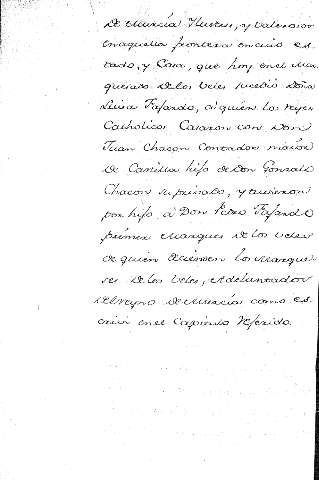 De Murcia Ilustres, y valerosos
en aquella frontera en cuio es-
tado, y Casa, que hoy es el Mar
quesado de los Veles sucedió Doña
Luisa Fajardo, á quien los reyes
Catholicos Casaron con Don
Juan Chacon Contador maior
De Castilla hijo de Don Gonzalo
Chacon su privado, y tuvieron
por hijo á Don Pedro Fajardo
primer Marques de los Veles
de quien decienden los Marque
ses de los Veles, Adelantados
del reyno de Murcia como es-
criví en el Capitulo referido.